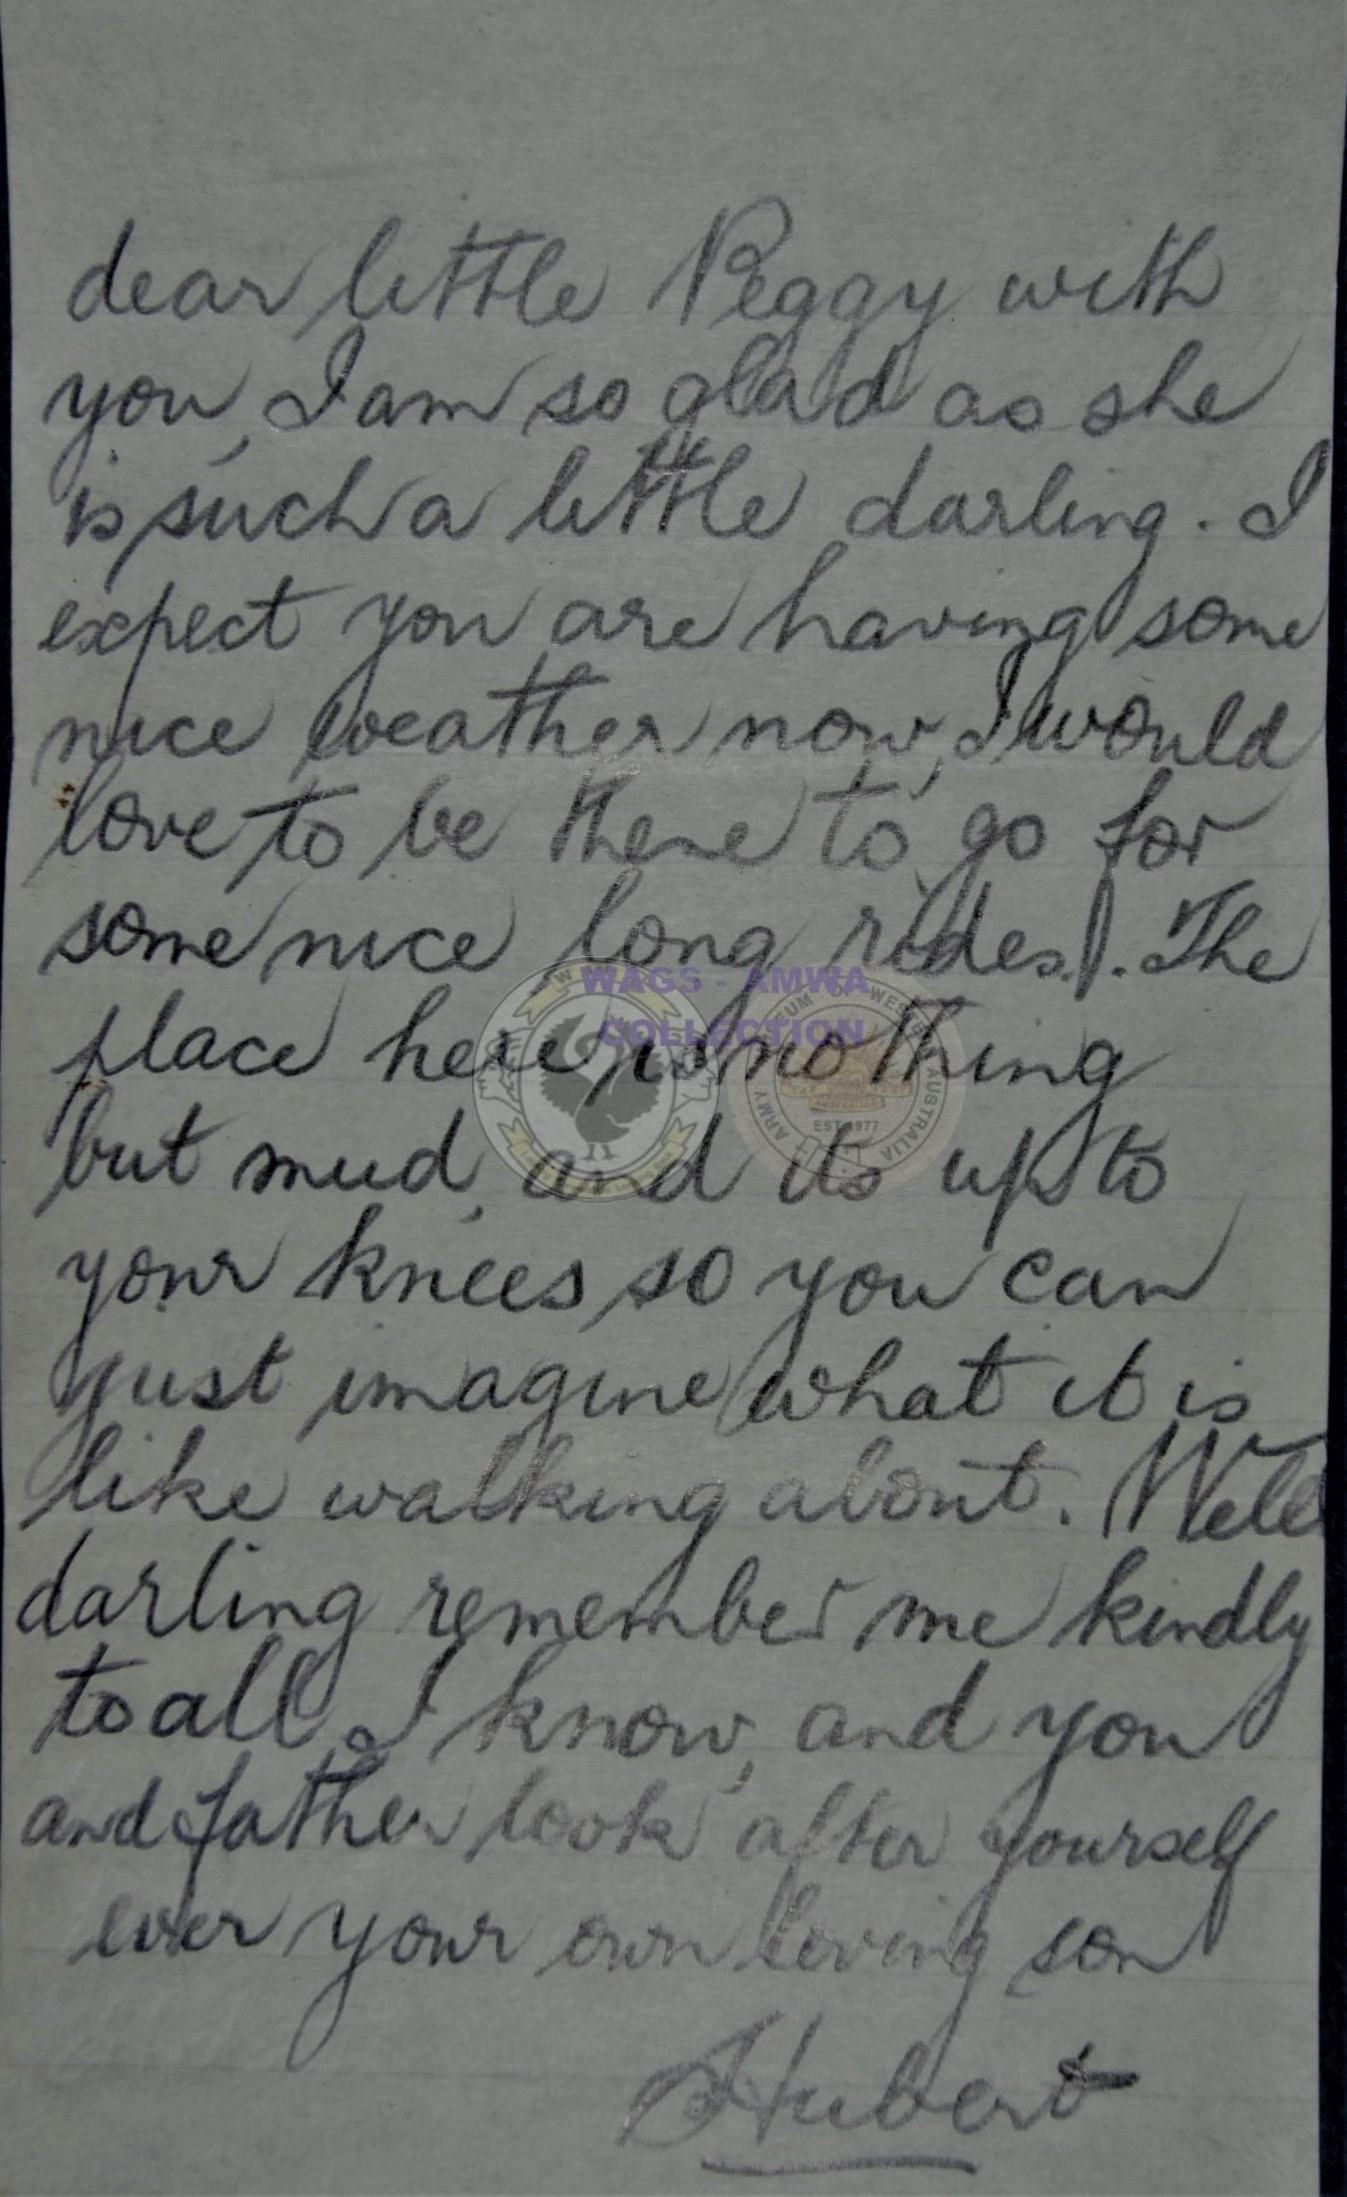 dear little Peggy with
you, I am so glad as she
is such a little darling. I
expect you are having some
nice weather now, I would
love to be there to go for
some nice long rides. The
place here is nothing
but mud, and its up to
your knees, so you can
just imagine what it is
like walking about. Well
darling remember me kindly
to all I know, and you
and father look after yourself
ever your own loving son
Hubert
WAGS - AMWA
COLLECTION
ARMY MUSEUM OF WESTERN AUSTRALIA
EST 1977